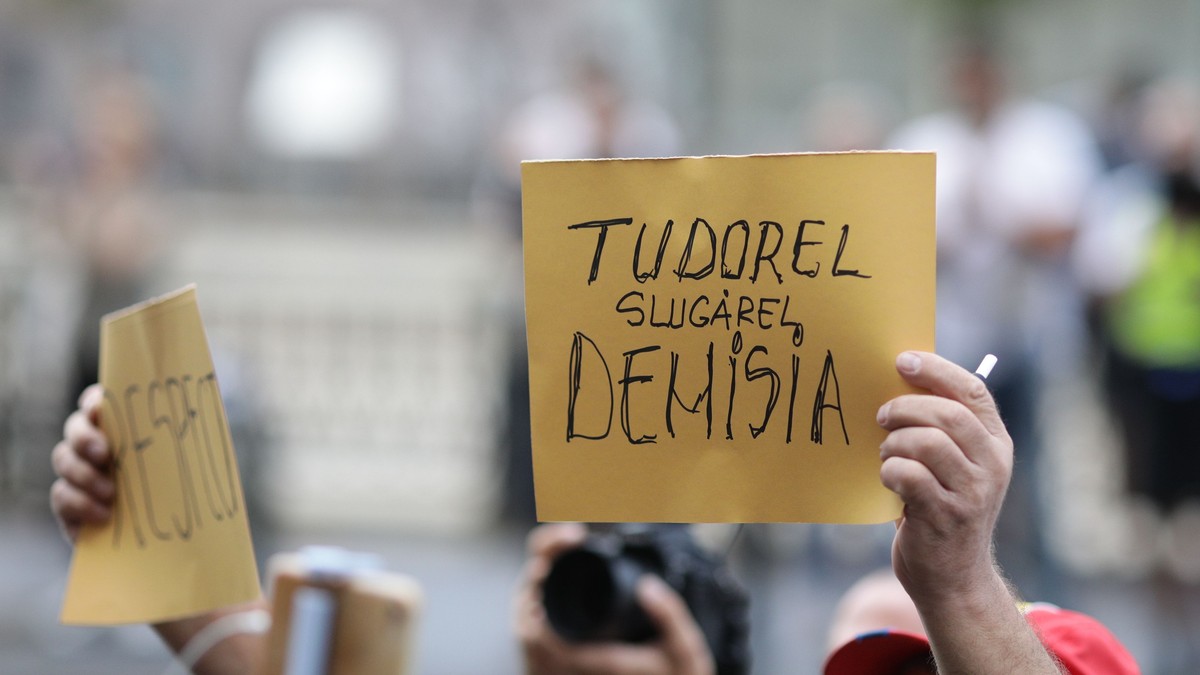 RESPECT
TUDOREL
SLUGĂREL,
DEMISIA